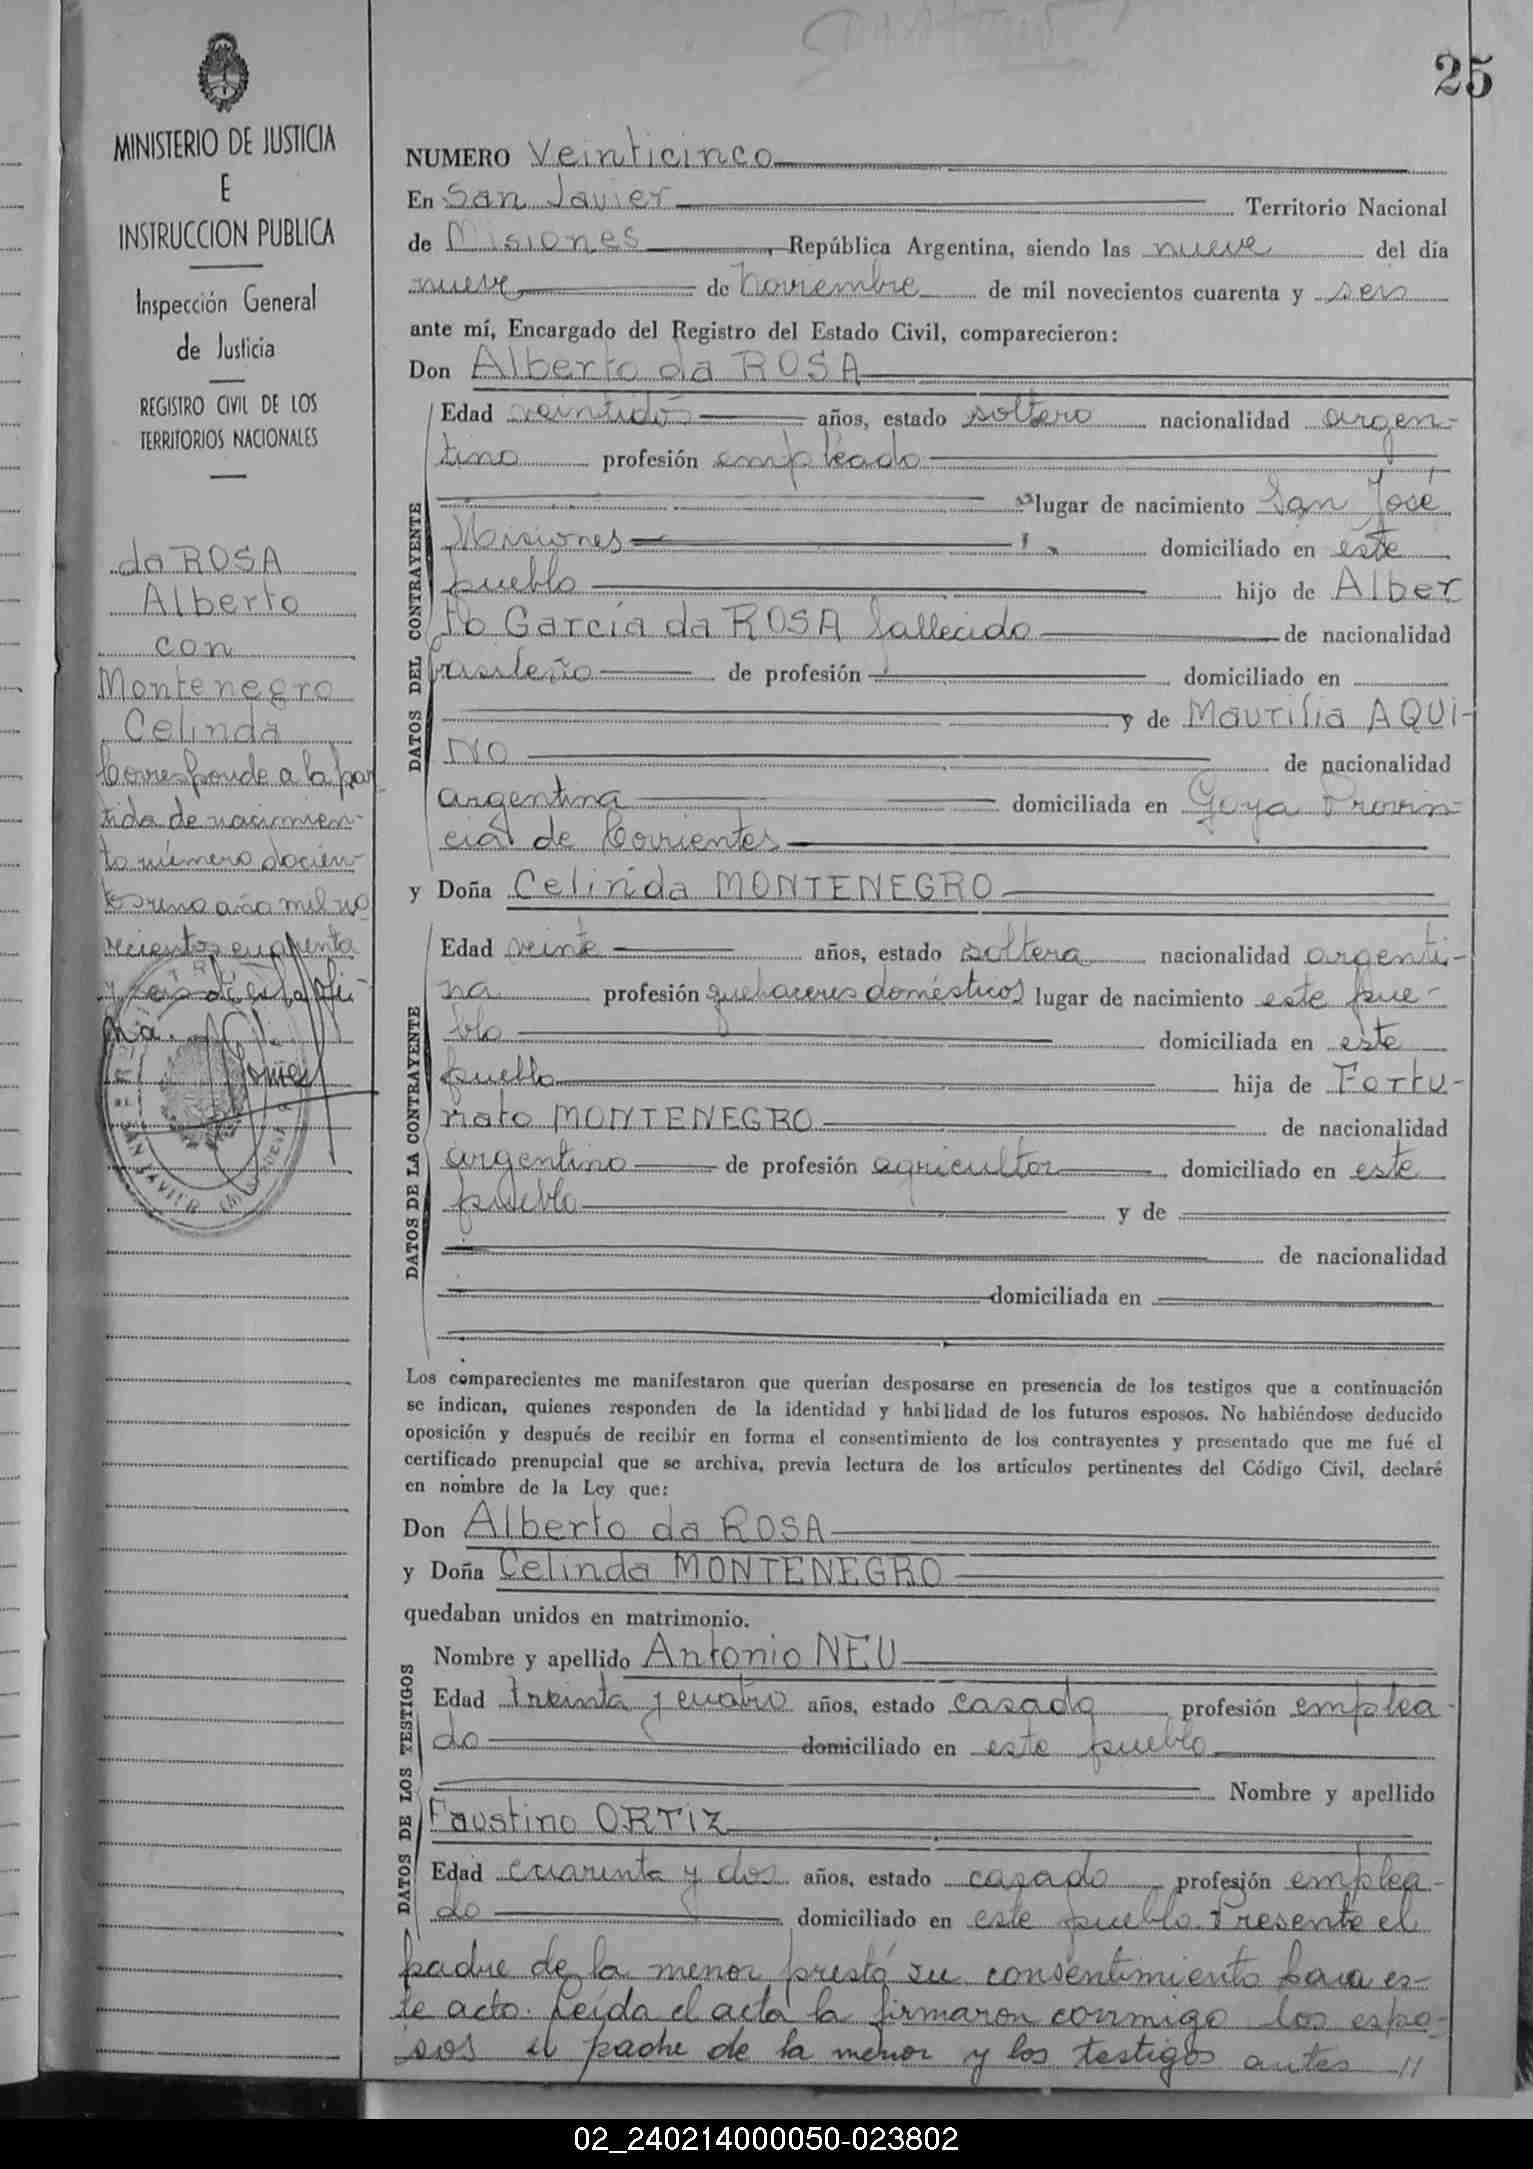 25
MINISTERIO DE JUSTICIA
E
INSTRUCCION PUBLICA
Inspección General
de Justicia
REGISTRO CIVIL DE LOS
TERRITORIOS NACIONALES
da ROSA
Alberto
con
Montenegro
Celinda
Corresponde a la par
tida de nacimien-
to número docien-
tos uno año mil no
vecientos cuarenta
y seis de esta ofi-
na.
NUMERO Veinticinco
En San Javier Territorio Nacional
de Misiones, República Argentina, siendo las nueve del día
nueve de Noviembre de mil novecientos cuarenta y seis
ante mí, Encargado del Registro del Estado Civil, comparecieron:
Don Alberto da ROSA
DATOS DEL CONTRAYENTE
Edad veintidos años, estado soltero nacionalidad argen-
tino profesión empleado
lugar de nacimiento San José
Misiones domiciliado en este
pueblo hijo de Alber
to García da ROSA fallecido de nacionalidad
brasileño de profesión domiciliado en
y de Maurilia AQUI-
NO de nacionalidad
argentina domiciliada en Goya Provin-
cia de Corrientes
y Doña Celinda MONTENEGRO
DATOS DE LA CONTRAYENTE
Edad veinte años, estado soltera nacionalidad argenti-
na profesión quehaceres domésticos lugar de nacimiento este pue-
blo domiciliada en este
pueblo hija de Fortu-
nato MONTENEGRO de nacionalidad
argentino de profesión agricultor domiciliado en este
pueblo y de
de nacionalidad
domiciliada en
Los comparecientes me manifestaron que querían desposarse en presencia de los testigos que a continuación
se indican, quienes responden de la identidad y habilidad de los futuros esposos. No habiéndose deducido
oposición y después de recibir en forma el consentimiento de los contrayentes y presentado que me fué el
certificado prenupcial que se archiva, previa lectura de los artículos pertinentes del Código Civil, declaré
en nombre de la Ley que:
Don Alberto da ROSA
y Doña Celinda MONTENEGRO
quedaban unidos en matrimonio.
DATOS DE LOS TESTIGOS
Nombre y apellido Antonio NEU
Edad treinta y cuatro años, estado casado profesión emplea-
do domiciliado en este pueblo
Nombre y apellido
Faustino ORTIZ
Edad cuarenta y dos años, estado casado profesión emplea-
do domiciliado en este pueblo. Presente el
padre de la menor prestó su consentimiento para es-
te acto. Leída el acta la firmaron conmigo los espo-
sos el padre de la menor y los testigos antes //
02_240214000050-023802